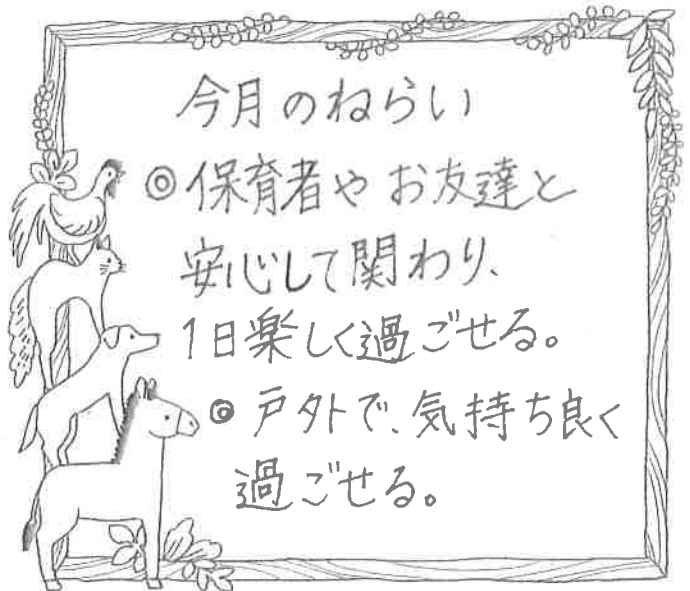 今月のねらい
◎保育者やお友達と
安心して関わり、
1日楽しく過ごせる。
◎戸外で、気持ち良く
過ごせる。